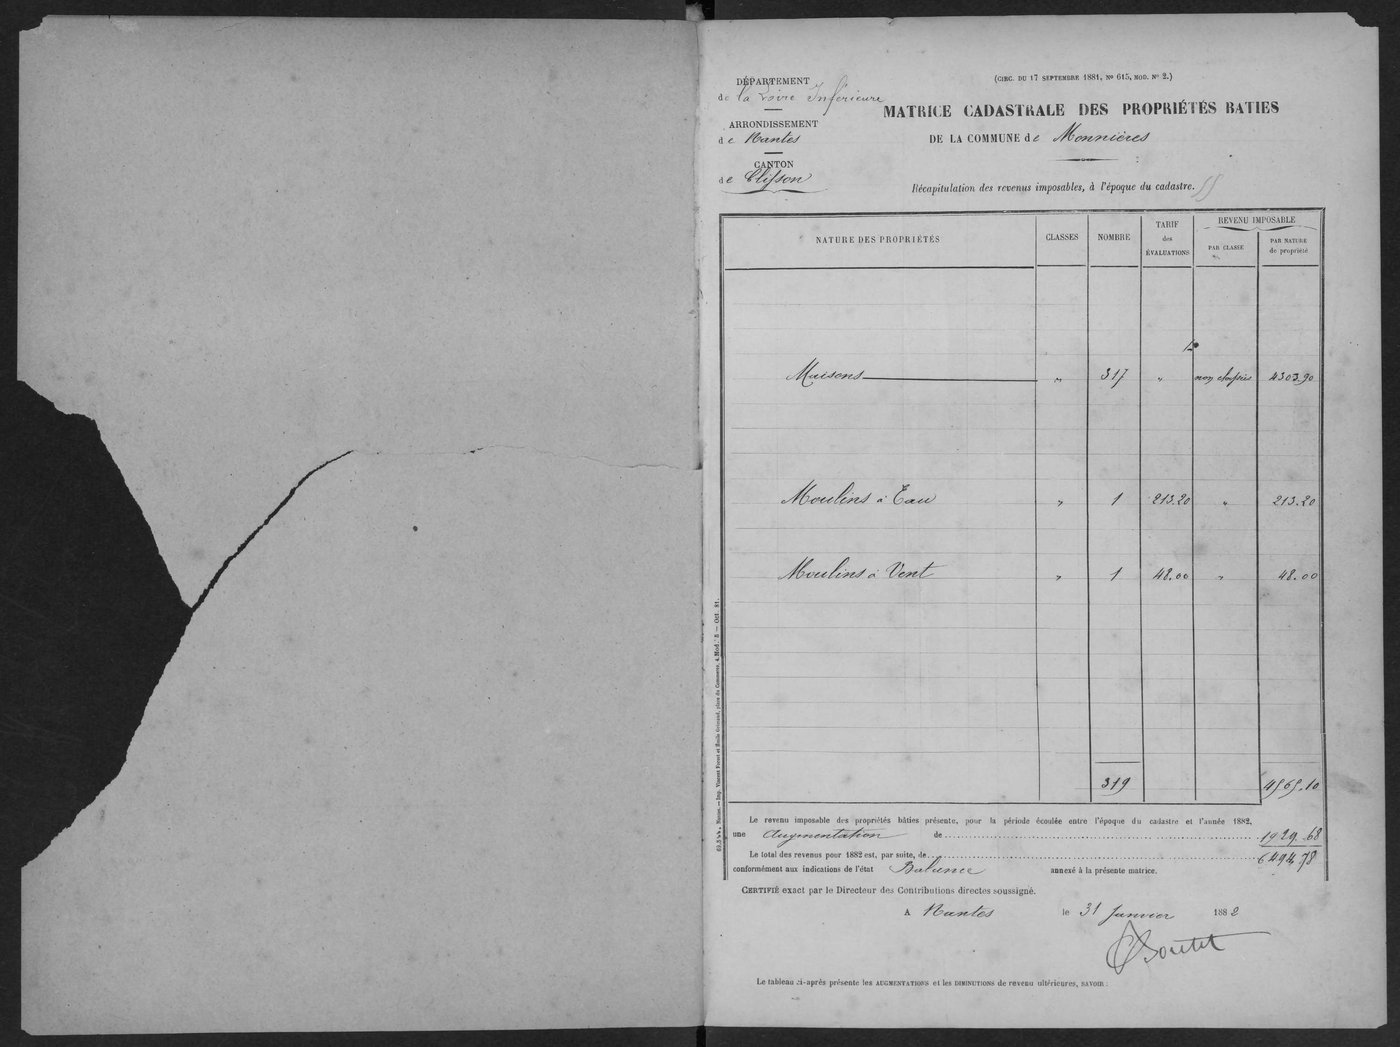 DÉPARTEMENT
de la Loire Inférieure
ARRONDISSEMENT
de Nantes
CANTON
de Clisson
(CIRC. DU 17 SEPTEMBRE 1881, No 615, MOD. No 2.)
MATRICE CADASTRALE DES PROPRIÉTÉS BATIES
DE LA COMMUNE de Monnières
Récapitulation des revenus imposables, à l'époque du cadastre.
NATURE DES PROPRIÉTÉS CLASSES NOMBRE TARIF des ÉVALUATIONS REVENU IMPOSABLE PAR CLASSE PAR NATURE de propriété
Maisons " 317 " non classées 4303.90
Moulins à Eau " 1 213.20 " 213.20
Moulins à Vent " 1 48.00 " 48.00
319 4565.10
Le revenu imposable des propriétés bâties présente, pour la période écoulée entre l'époque du cadastre et l'année 1882,
une Augmentation de 1929.68
Le total des revenus pour 1882 est, par suite, de 6494.78
conformément aux indications de l'état Balance annexé à la présente matrice.
CERTIFIÉ exact par le Directeur des Contributions directes soussigné.
A Nantes le 31 Janvier 1882
Le tableau ci-après présente les AUGMENTATIONS et les DIMINUTIONS de revenu ultérieures, SAVOIR :
Nantes. — Imp. Vincent Forest et Émile Grimaud, place du Commerce, 4. Mod. 5 — Oct. 81.